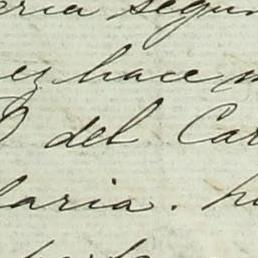 eria segun
ez hace m
del Car
laria. h